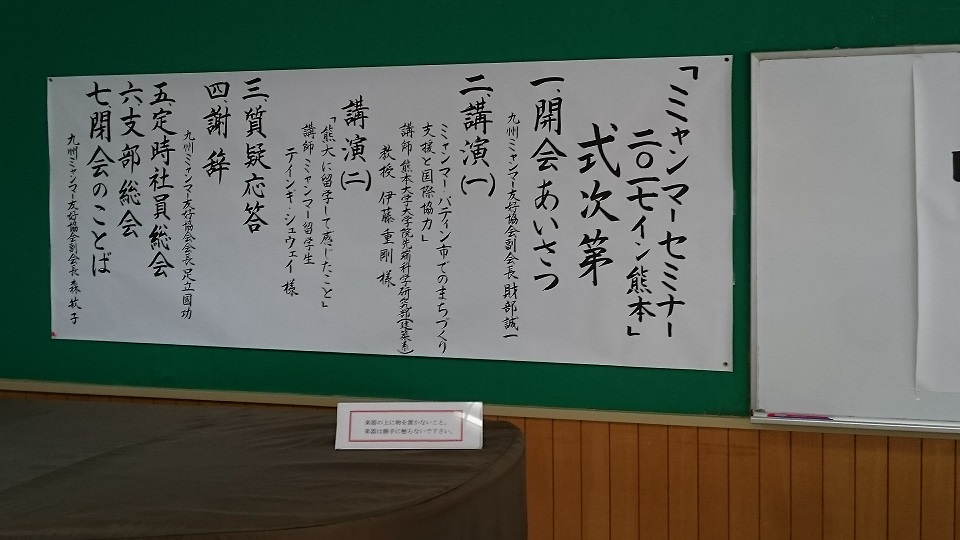 「ミャンマーセミナー
二〇一七イン熊本」
式次第
一、開会あいさつ
九州ミャンマー友好協会副会長 財部誠一
二、講演(一)
ミャンマー・パティン市でのまちづくり
支援と国際協力」
講師 熊本大学大学院先端科学研究部(建築系)
教授 伊藤重剛 様
講演(二)
「熊大に留学して感じたこと」
講師 ミャンマー留学生
テインキ・シュウェイ 様
三、質疑応答
四、謝辞
九州ミャンマー友好協会会長 足立国功
五、定時社員総会
六、支部総会
七、閉会のことば
九州ミャンマー友好協会副会長 森 子
楽器の上に物を置かないこと。
楽器は勝手に触らないで下さい。